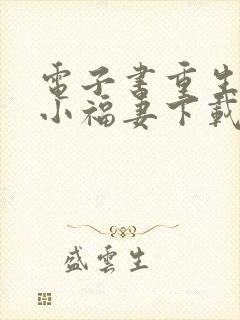 電子書重生
小福妻下載
盛雲生